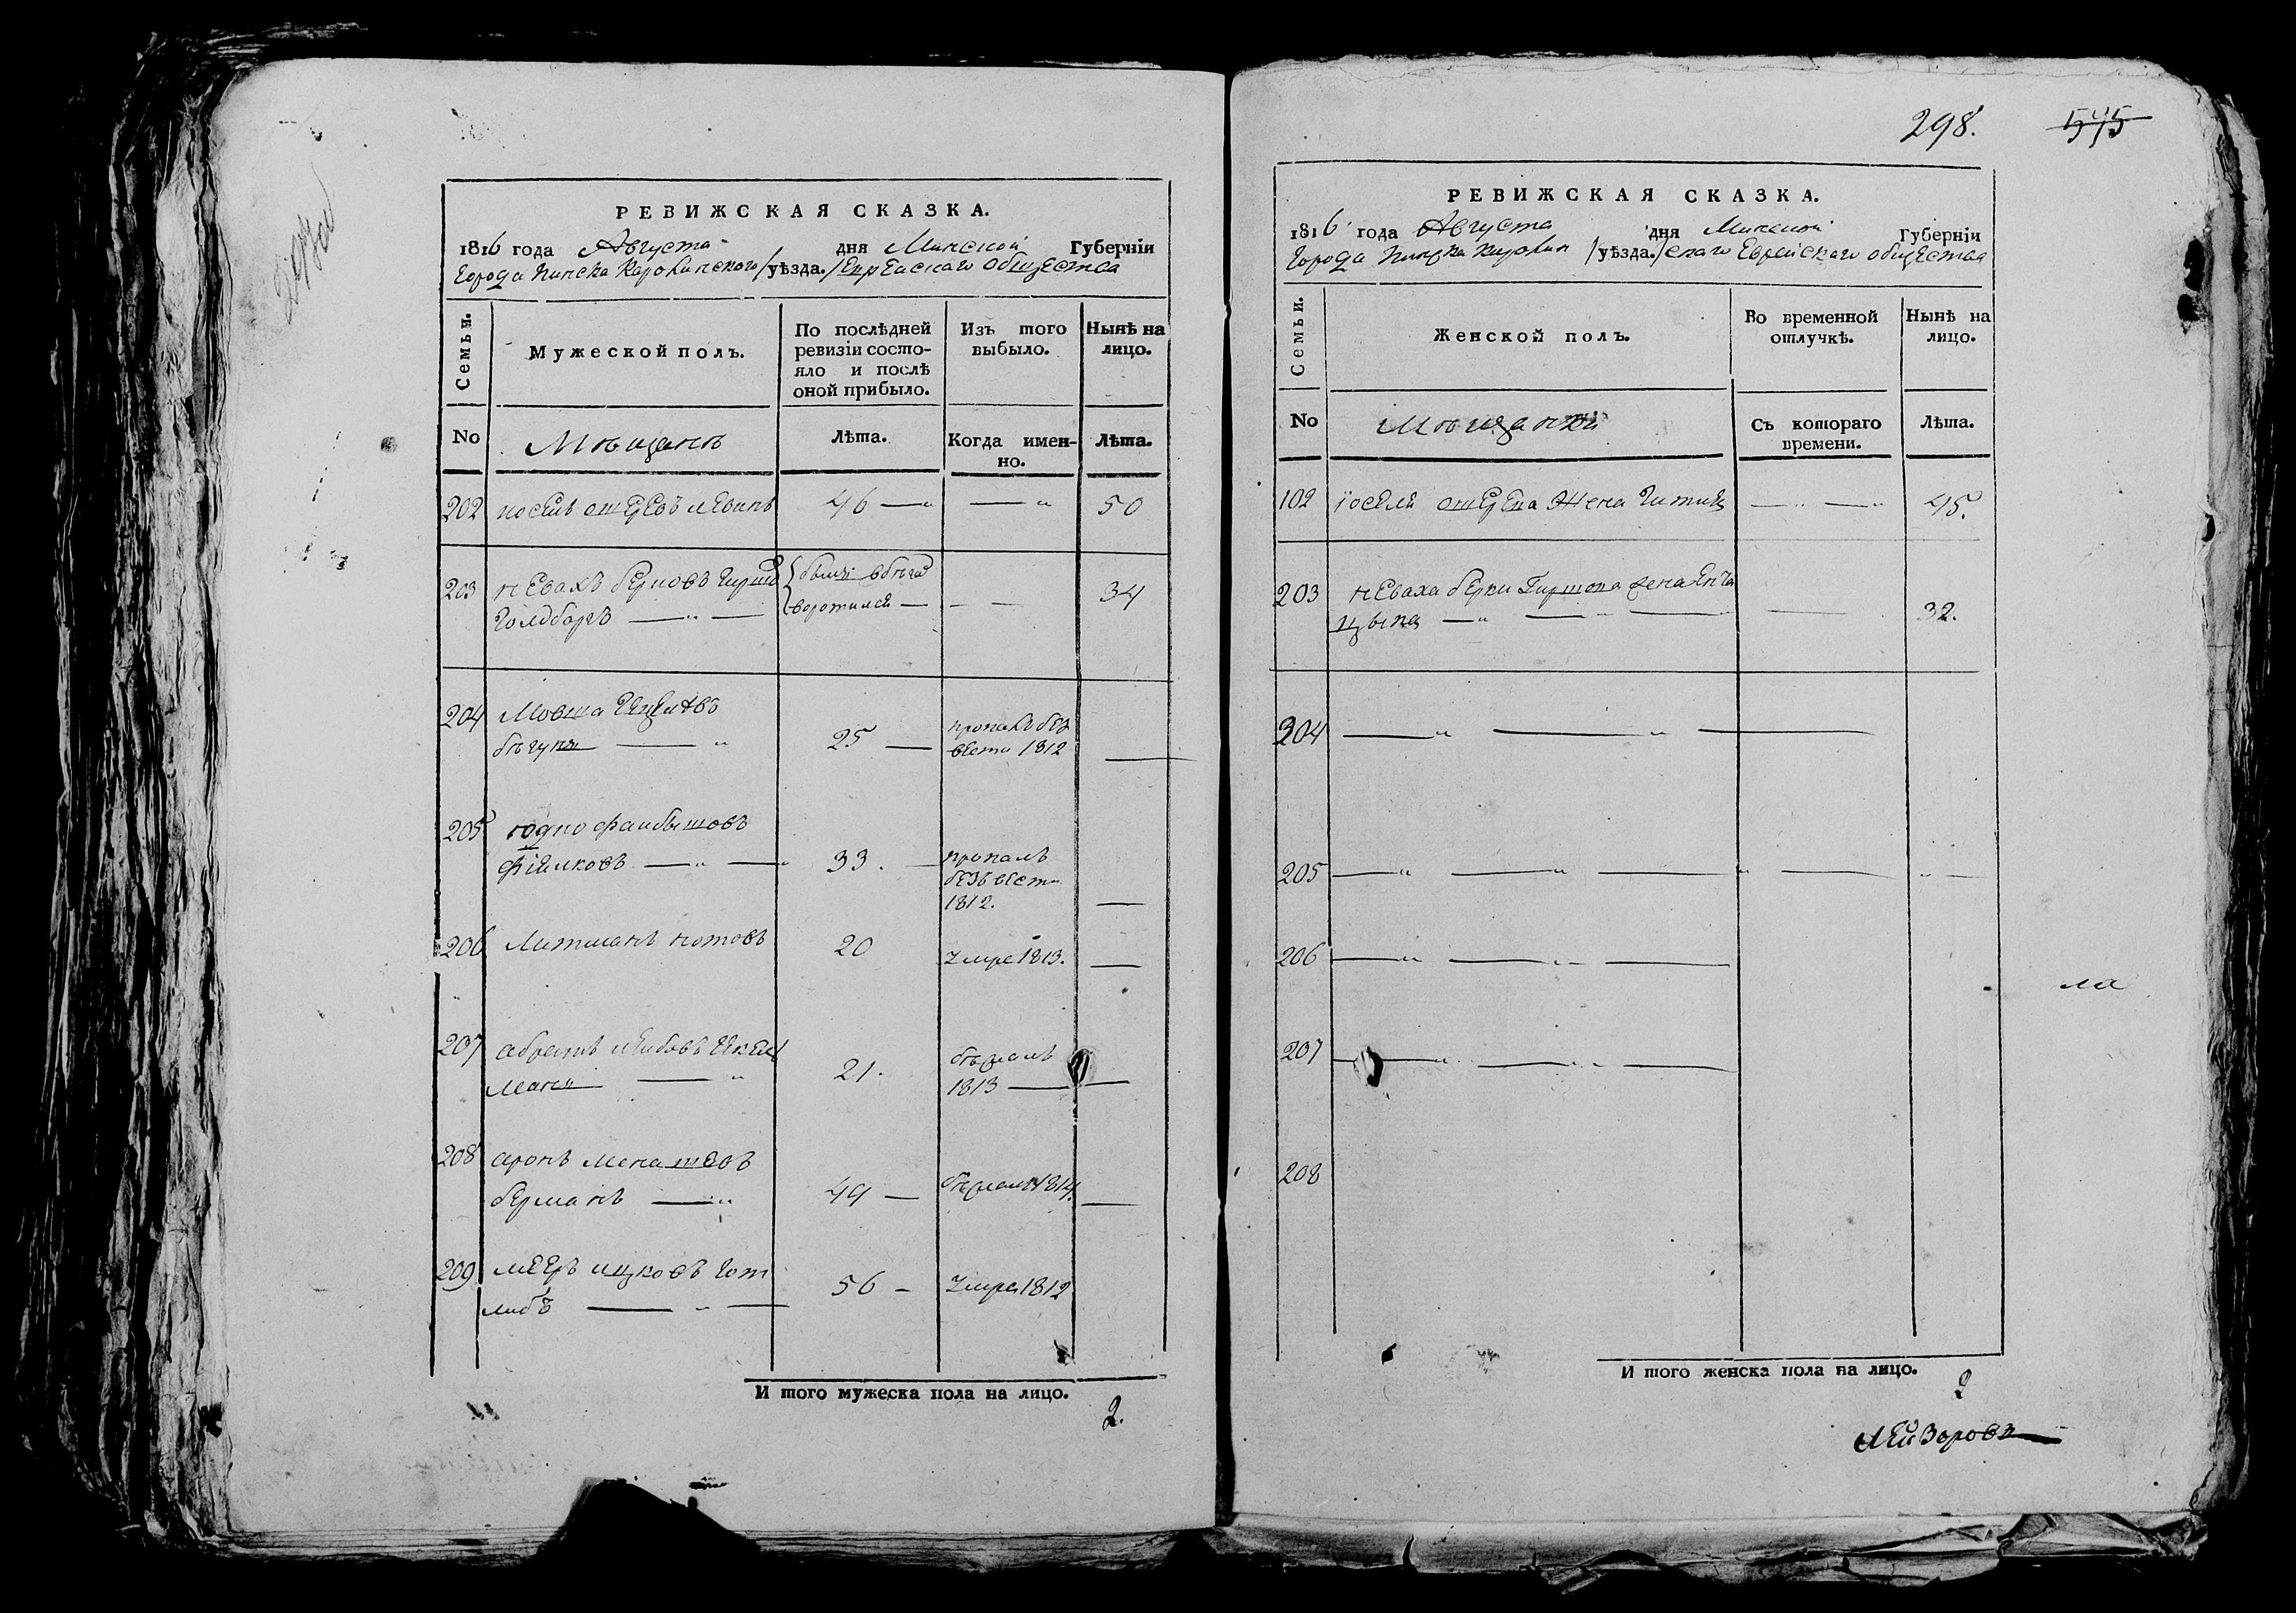 РЕВИЖСКАЯ СКАЗКА.
1816 года Августа дня Минской Губерніи
Города Пинска Каролинского /уѣзда./ Еврейскаго Общества
Семьи.
Мужеской полъ.
По послѣдней ревизіи состо-
яло и послѣ
оной прибыло.
Изъ того
выбыло.
Нынѣ на
лицо.
No
Мѣщанѣ
Лѣта.
Когда имен-
но.
Лѣта.
202 иосель ошеровъ левинъ 46 — „ — „ 50
203 невахъ берковъ гирша
голдбаргъ — „ —
воротился — — — 34
204 Мовша
бѣгунъ — „ 25 — пропалъ без
вести 1812 —
205 юдко файбышовъ
фіялковъ — „ — „ 33. — пропалъ
безъ вести
1812. —
206 Литманъ нотовъ 20 умре 1813. —
207 абрамъ лейбовъ
21. бѣжалъ
1813 — —
208 аронъ менашевъ
берманъ — „ 49 — бѣжалъ 1814. —
209 мееръ ицковъ гот
либъ — „ — 56 — умре 1812
И того мужеска пола на лицо.
2.
298. 545
РЕВИЖСКАЯ СКАЗКА.
1816 года Августа дня Минской Губерніи
Города Пинска Каролин /уѣзда./ скаго Еврейскаго общества
Семьи.
Женской полъ.
Во временной
отлучкѣ.
Нынѣ на
лицо.
No
Мѣщанки
Съ котораго
времени.
Лѣта.
102 іоселя ошерова жена — „ — „ 45.
203 неваха берки Гиршова жена
— „ — „ — — 32.
204 — „ — „ —
205 — „ — „ — „ — „ —
206 — „ — „ —
207 — „ — „ —
208
И того женска пола на лицо.
2
Лейзоровъ